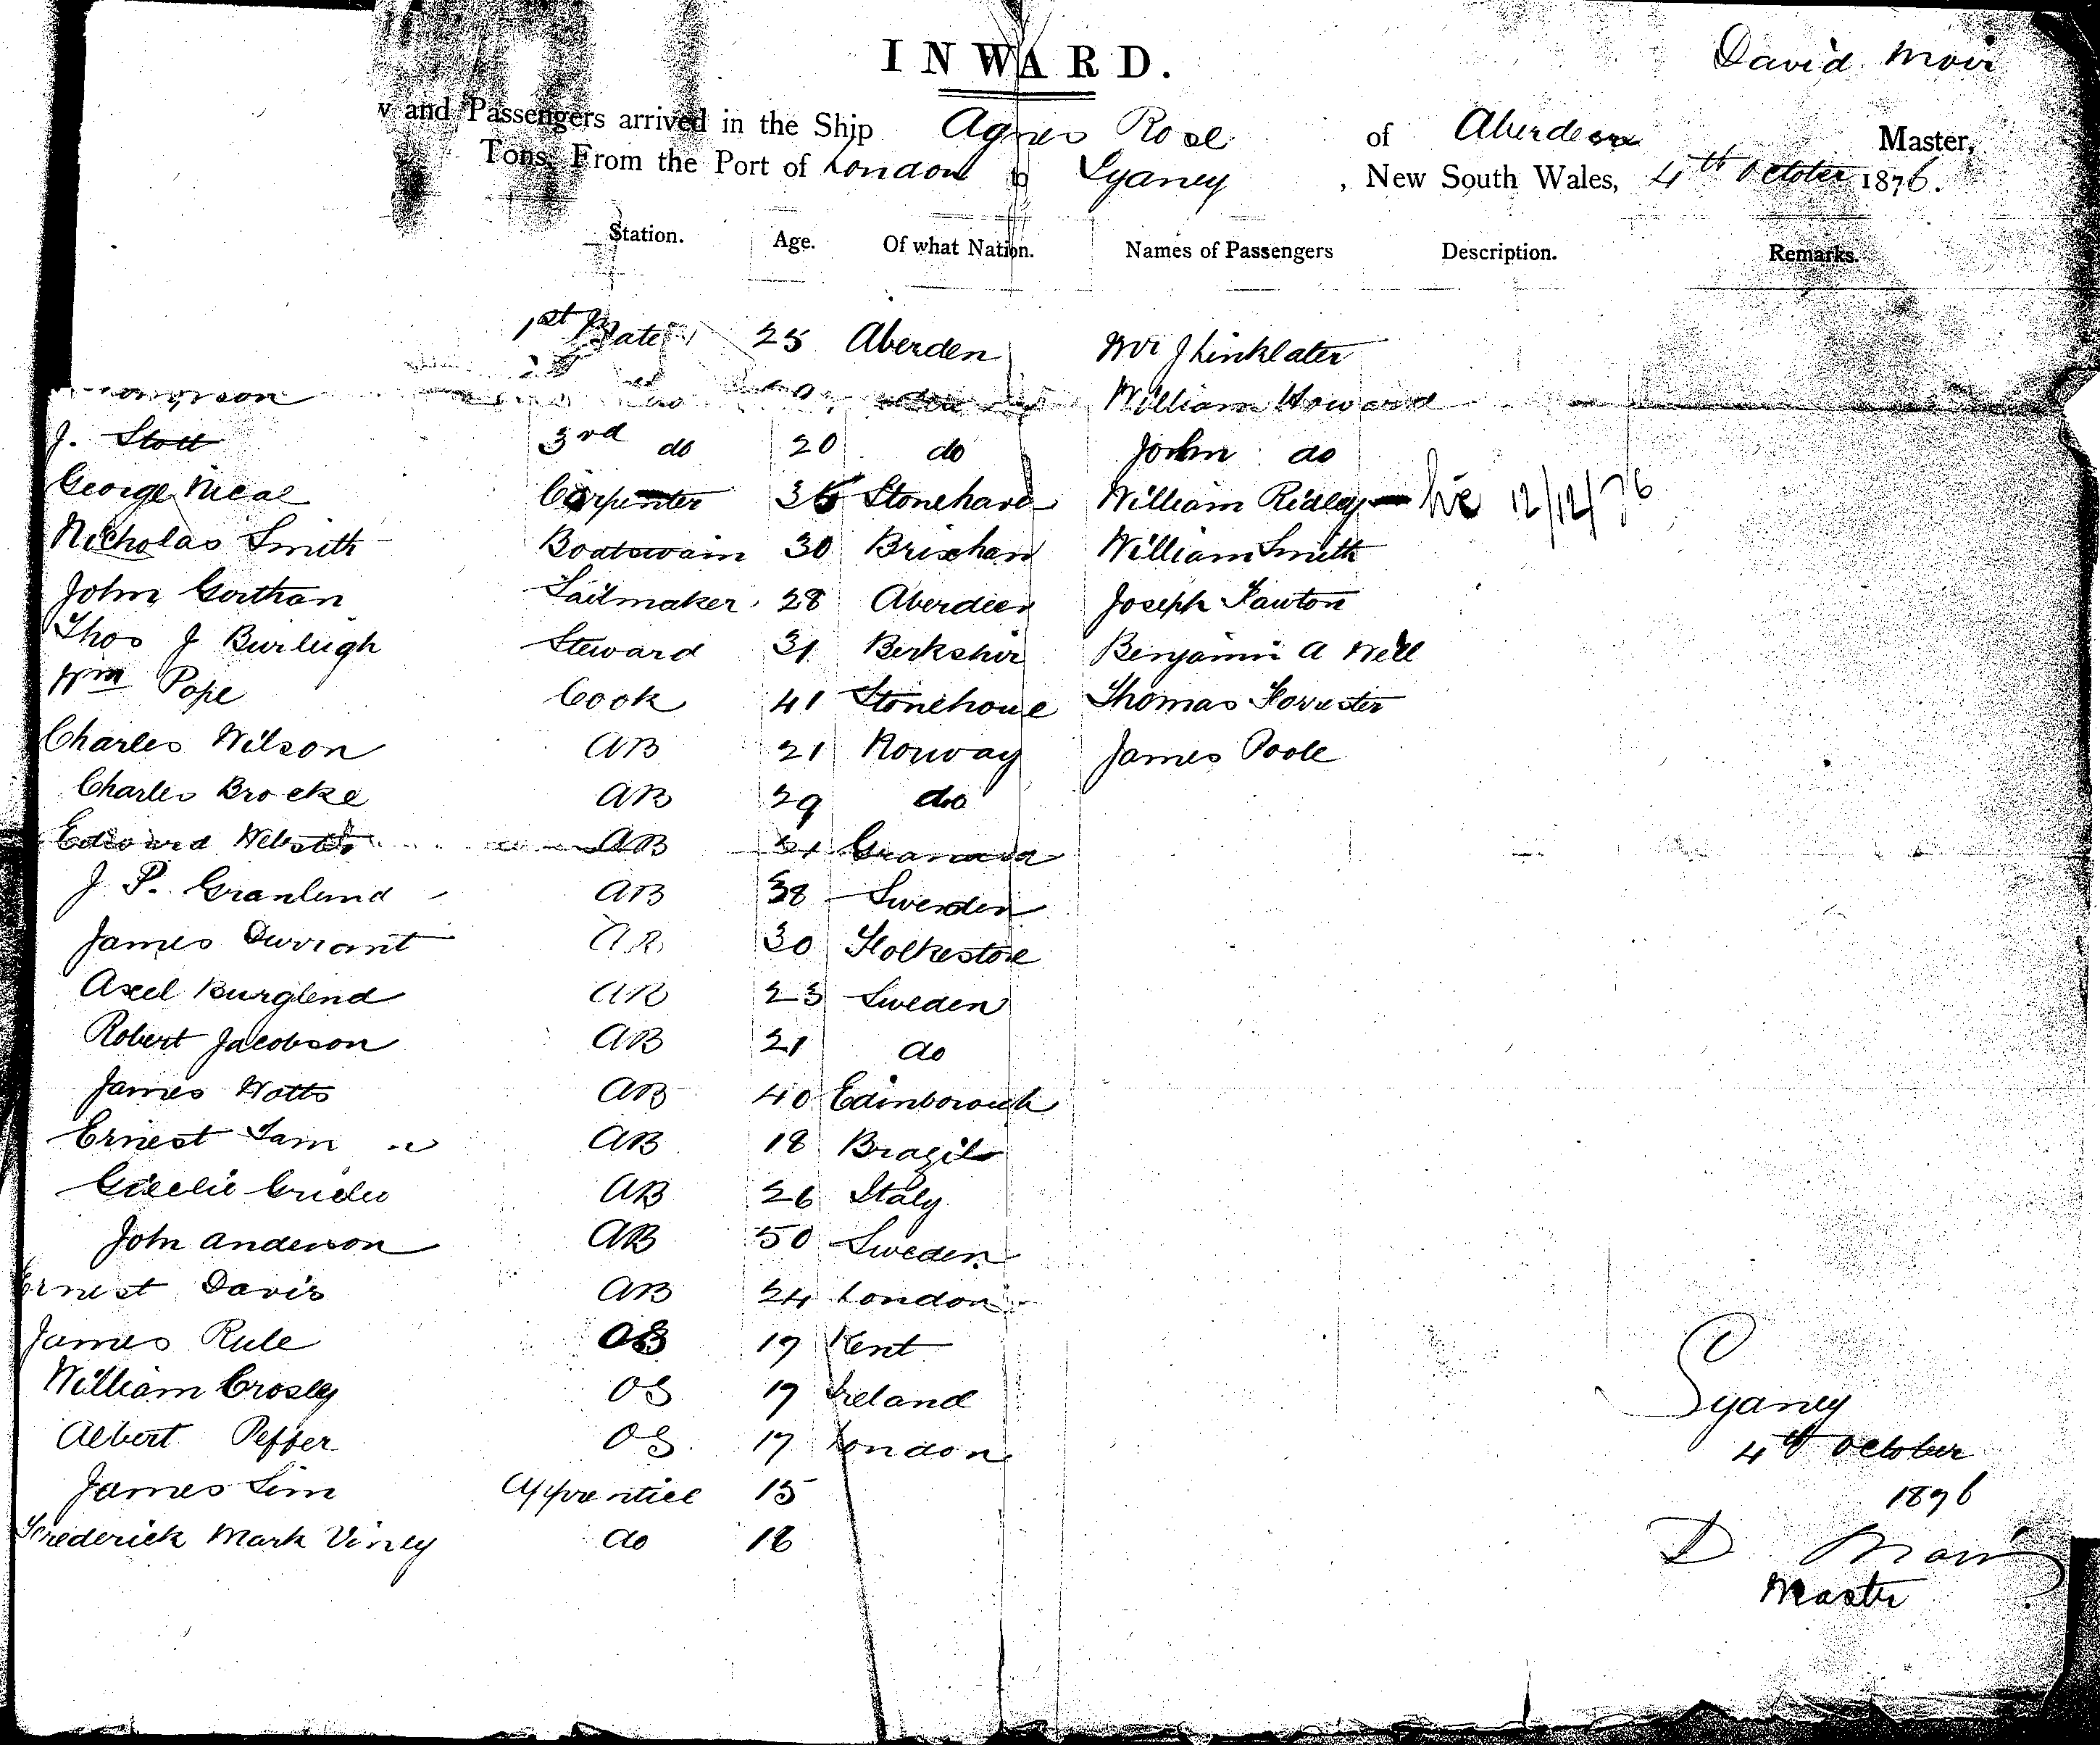 INWARD.
David Moir
w and Passengers arrived in the Ship Agnes Rose of Aberdeen Master,
Tons, From the Port of London to Sydney, New South Wales, 4th October 1876.
Station. Age. Of what Nation. Names of Passengers Description. Remarks.
1st Mate 25 Aberden Mr J Linklater
do William Howard
J. Stott 3rd do 20 do John do
George Nicol Carpenter 36 Stonehave William Ridley 12/12/76
Nicholas Smith Boatswain 30 Brixhan William Smith
John Gorthan Sailmaker 28 Aberdeen Joseph Fawton
Thos J Burleigh Steward 31 Berkshir Benjamin A Well
Wm Pope Cook 41 Stonehouse Thomas Forrester
Charles Wilson AB 21 Norway James Poole
Charles Brocke AB 29 do
Edward Webster AB
J. P. Granlund AB 38 Sweeden
James Durrant AB 30 Folkestone
Axel Burglend AB 23 Sweden
Robert Jacobson AB 21 do
James Watts AB 40 Edinborough
Ernest AB 18 Brazil
AB 26 Italy
John Anderson AB 50 Sweden
Ernest Davis AB 24 London
James Rule OS 17 Kent
William Crosly OS 17 Ireland
Albert Peffer OS 17 London
James Sim Apprentice 15
Frederick Mark Viney do 16
Sydney
4th October
1876
D Moir
Master